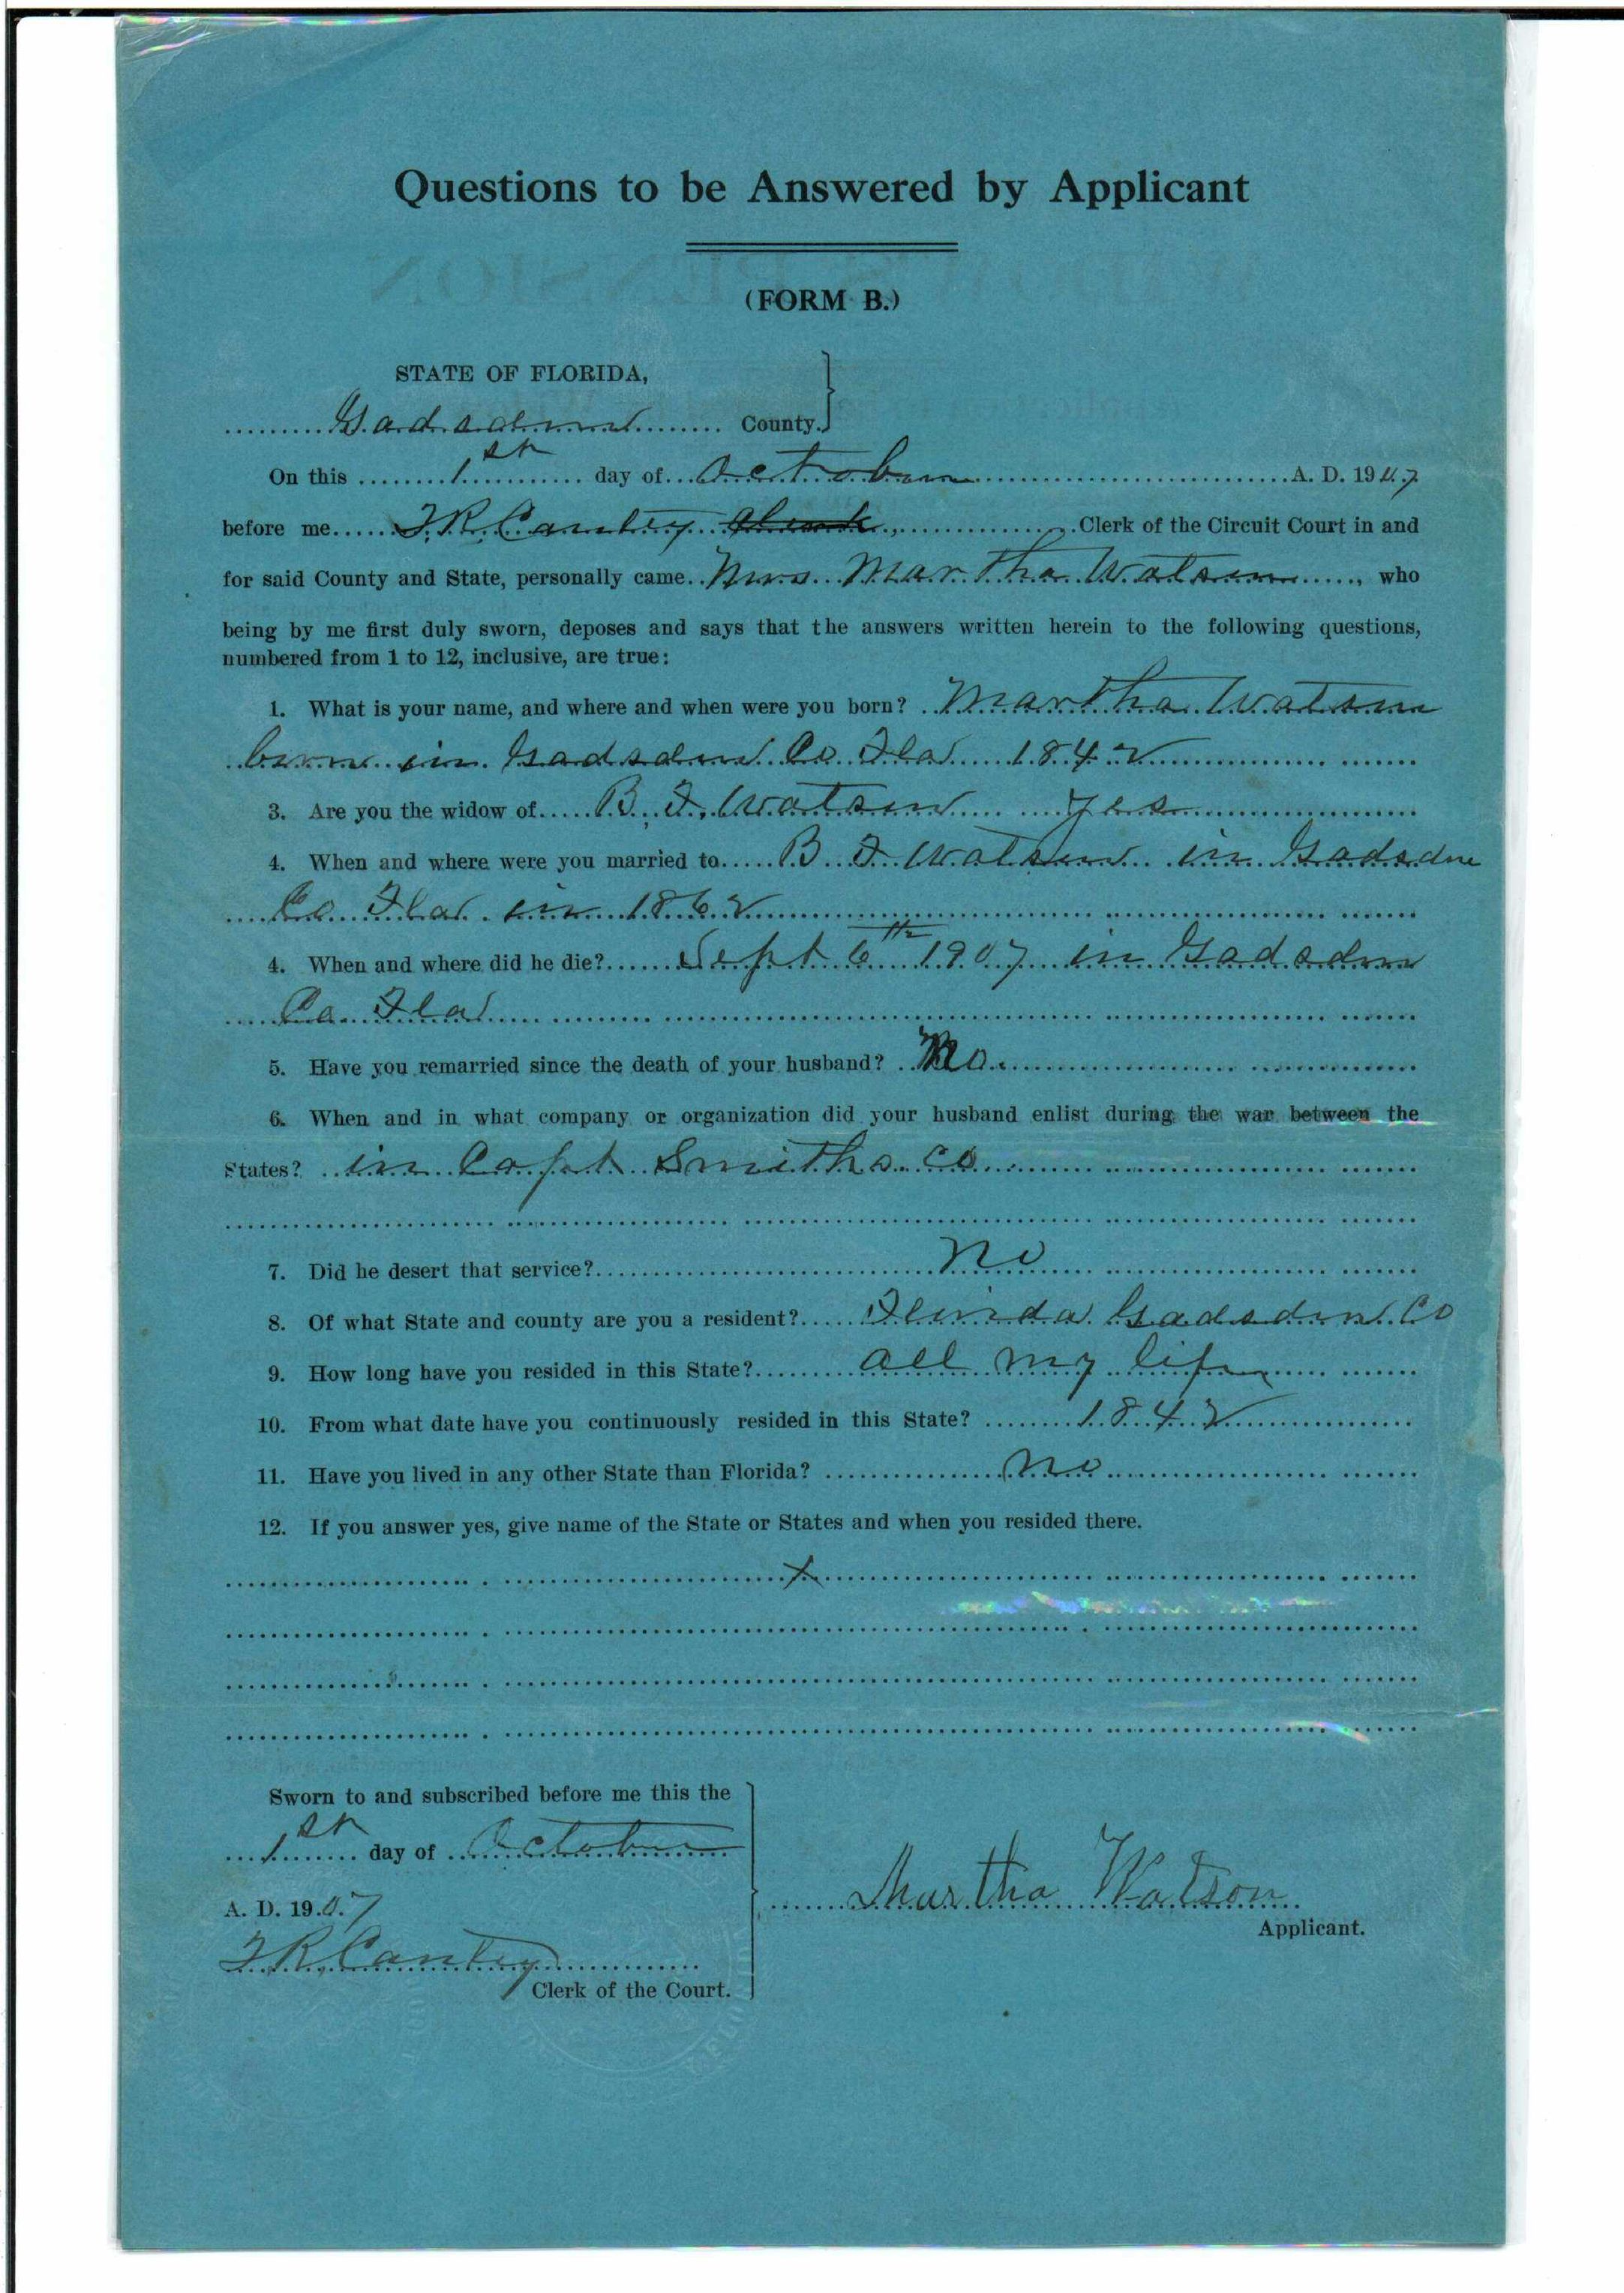 Questions to be Answered by Applicant
(FORM B.)
STATE OF FLORIDA,
Gadsden County.
On this 1st day of October A. D. 1907
before me J. R. Cantey, Clerk of the Circuit Court in and
for said County and State, personally came Mrs Martha Watson, who
being by me first duly sworn, deposes and says that the answers written herein to the following questions,
numbered from 1 to 12, inclusive, are true:
1. What is your name, and where and when were you born? Martha Watson
born in Gadsden Co Fla 1842
3. Are you the widow of B. F. Watson yes
4. When and where were you married to B F Watson in Gadsden
Co Fla in 1862
4. When and where did he die? Sept 6th 1907 in Gadsden
Co Fla
5. Have you remarried since the death of your husband? No
6. When and in what company or organization did your husband enlist during the war between the
States? in Capt Smiths co
7. Did he desert that service? no
8. Of what State and county are you a resident? Florida Gadsden Co
9. How long have you resided in this State? all my life
10. From what date have you continuously resided in this State? 1842
11. Have you lived in any other State than Florida? no
12. If you answer yes, give name of the State or States and when you resided there.
X
Sworn to and subscribed before me this the
1st day of October
A. D. 1907
Martha Watson
Applicant.
J R Cantey
Clerk of the Court.